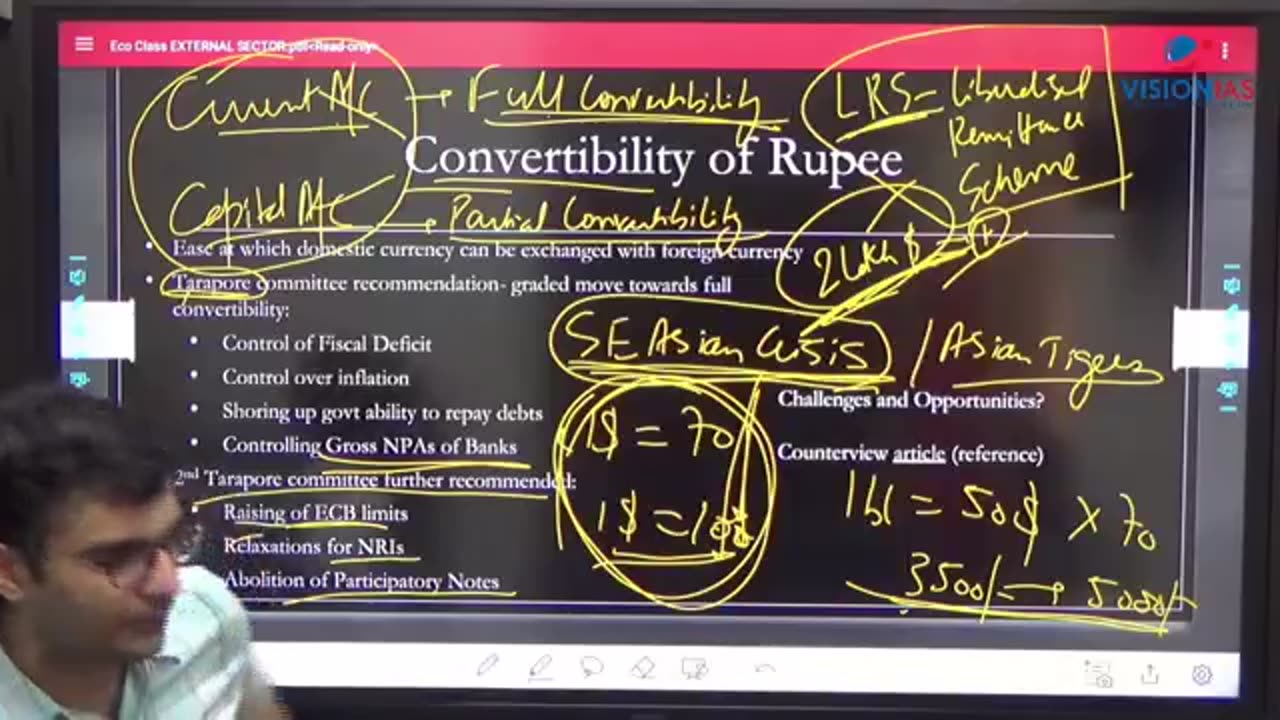 Eco Class EXTERNAL SECTOR.pdf<Read-only>
VISIONIAS
Current A/C → Full Convertibility
LRS - Liberalised
Remittance
Scheme
Convertibility of Rupee
Capital A/C → Partial Convertibility
2 Lakh $
Ease at which domestic currency can be exchanged with foreign currency
Tarapore committee recommendation- graded move towards full
convertibility:
SE Asian Crisis / Asian Tigers
Control of Fiscal Deficit
Control over inflation
Shoring up govt ability to repay debts
Controlling Gross NPAs of Banks
1$ = 70
Challenges and Opportunities?
Counterview article (reference)
2nd Tarapore committee further recommended:
Raising of ECB limits
Relaxations for NRIs
Abolition of Participatory Notes
1bl = 50$ x 70
3500/- → 5000/-